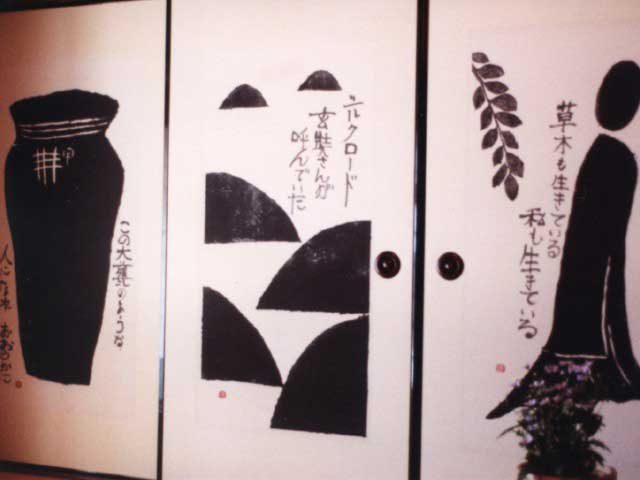 草木も生きている
私も生きている
シルクロード
玄奘さんが
呼んでいた
この大甕のような
人になれ